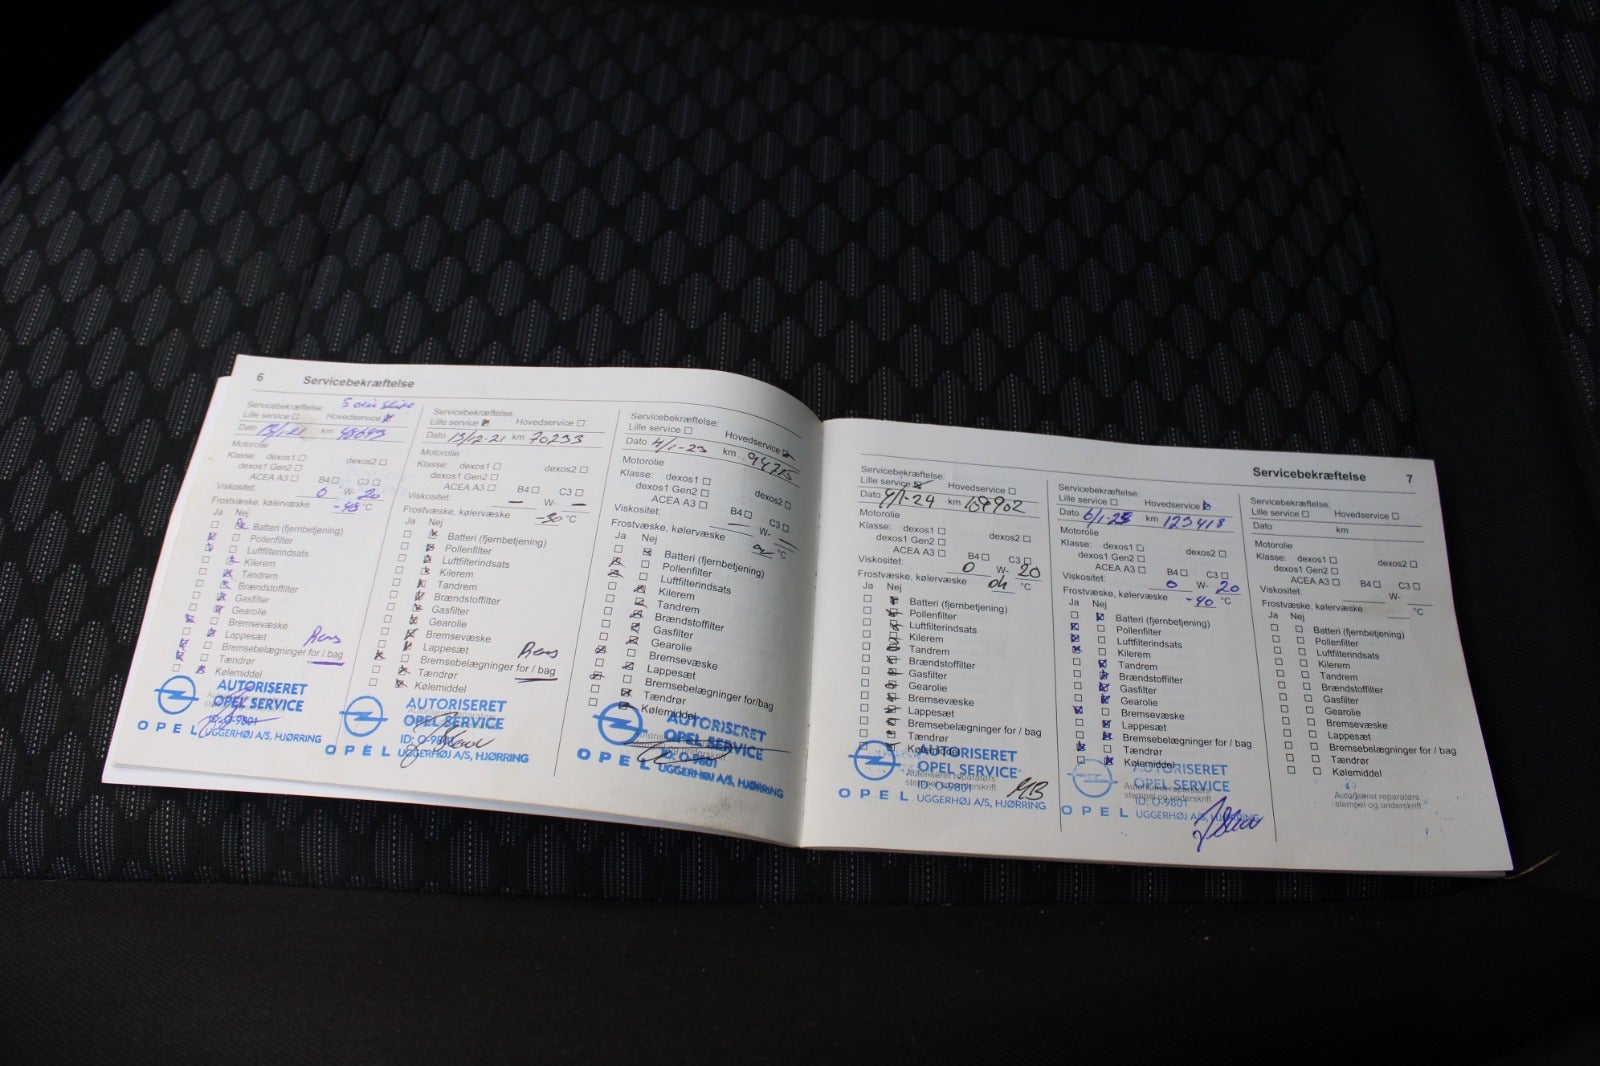 6 Servicebekræftelse
Servicebekræftelse:
Lille service Hovedservice
Dato km 48693
Motorolie
Klasse: dexos1 dexos2
dexos1 Gen2
ACEA A3 B4 C3
Viskositet: 0 W- 20
Frostvæske, kølervæske °C
Ja Nej
Batteri (fjernbetjening)
Pollenfilter
Luftfilterindsats
Kilerem
Tandrem
Brændstoffilter
Gasfilter
Gearolie
Bremsevæske
Lappesæt Rens
Bremsebelægninger for / bag
Tændrør
Kølemiddel
AUTORISERET
OPEL SERVICE
ID: O-9801
OPEL UGGERHØJ A/S, HJØRRING
Servicebekræftelse:
Lille service Hovedservice
Dato 13/12-21 km 70233
Motorolie
Klasse: dexos1 dexos2
dexos1 Gen2
ACEA A3 B4 C3
Viskositet: — W- —
Frostvæske, kølervæske -30 °C
Ja Nej
Batteri (fjernbetjening)
Pollenfilter
Luftfilterindsats
Kilerem
Tandrem
Brændstoffilter
Gasfilter
Gearolie
Bremsevæske
Lappesæt Rens
Bremsebelægninger for / bag
Tændrør
Kølemiddel
AUTORISERET
OPEL SERVICE
ID: O-9801
OPEL UGGERHØJ A/S, HJØRRING
Servicebekræftelse:
Lille service Hovedservice
Dato 4/1-23 km
Motorolie
Klasse: dexos1 dexos2
dexos1 Gen2
ACEA A3 B4 C3
Viskositet: — W- —
Frostvæske, kølervæske °C
Ja Nej
Batteri (fjernbetjening)
Pollenfilter
Luftfilterindsats
Kilerem
Tandrem
Brændstoffilter
Gasfilter
Gearolie
Bremsevæske
Lappesæt
Bremsebelægninger for/bag
Tændrør
Kølemiddel
AUTORISERET
OPEL SERVICE
ID: O-9801
OPEL UGGERHØJ A/S, HJØRRING
Servicebekræftelse 7
Servicebekræftelse:
Lille service Hovedservice
Dato km
Motorolie
Klasse: dexos1 dexos2
dexos1 Gen2
ACEA A3 B4 C3
Viskositet: 0 W- 20
Frostvæske, kølervæske °C
Ja Nej
Batteri (fjernbetjening)
Pollenfilter
Luftfilterindsats
Kilerem
Tandrem
Brændstoffilter
Gasfilter
Gearolie
Bremsevæske
Lappesæt
Bremsebelægninger for / bag
Tændrør
Kølemiddel
AUTORISERET
OPEL SERVICE
Autoriseret reparatørs
stempel og underskrift
ID: O-9801
OPEL UGGERHØJ A/S, HJØRRING
Servicebekræftelse:
Lille service Hovedservice
Dato km 123418
Motorolie
Klasse: dexos1 dexos2
dexos1 Gen2
ACEA A3 B4 C3
Viskositet: 0 W- 20
Frostvæske, kølervæske -40 °C
Ja Nej
Batteri (fjernbetjening)
Pollenfilter
Luftfilterindsats
Kilerem
Tandrem
Brændstoffilter
Gasfilter
Gearolie
Bremsevæske
Lappesæt
Bremsebelægninger for / bag
Tændrør
Kølemiddel
AUTORISERET
OPEL SERVICE
Autoriseret reparatørs
stempel og underskrift
ID: O-9801
OPEL UGGERHØJ A/S, HJØRRING
Servicebekræftelse:
Lille service Hovedservice
Dato km
Motorolie
Klasse: dexos1 dexos2
dexos1 Gen2
ACEA A3 B4 C3
Viskositet: W-
Frostvæske, kølervæske °C
Ja Nej
Batteri (fjernbetjening)
Pollenfilter
Luftfilterindsats
Kilerem
Tandrem
Brændstoffilter
Gasfilter
Gearolie
Bremsevæske
Lappesæt
Bremsebelægninger for / bag
Tændrør
Kølemiddel
Autoriseret reparatørs
stempel og underskrift